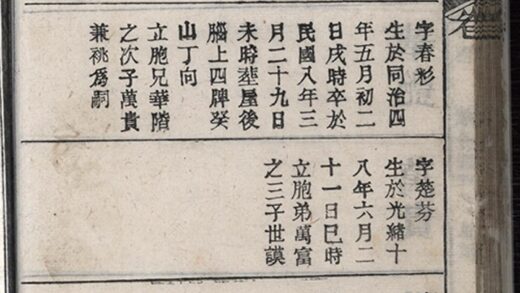 字春彩
生於同治四
年五月初二
日戌時卒於
民國八年三
月二十九日
未時塟屋後
腦上四牌癸
山丁向
立胞兄華階
之次子萬貴
兼祧爲嗣
字楚芬
生於光緒十
八年六月二
十一日巳時
立胞弟萬富
之三子世謨